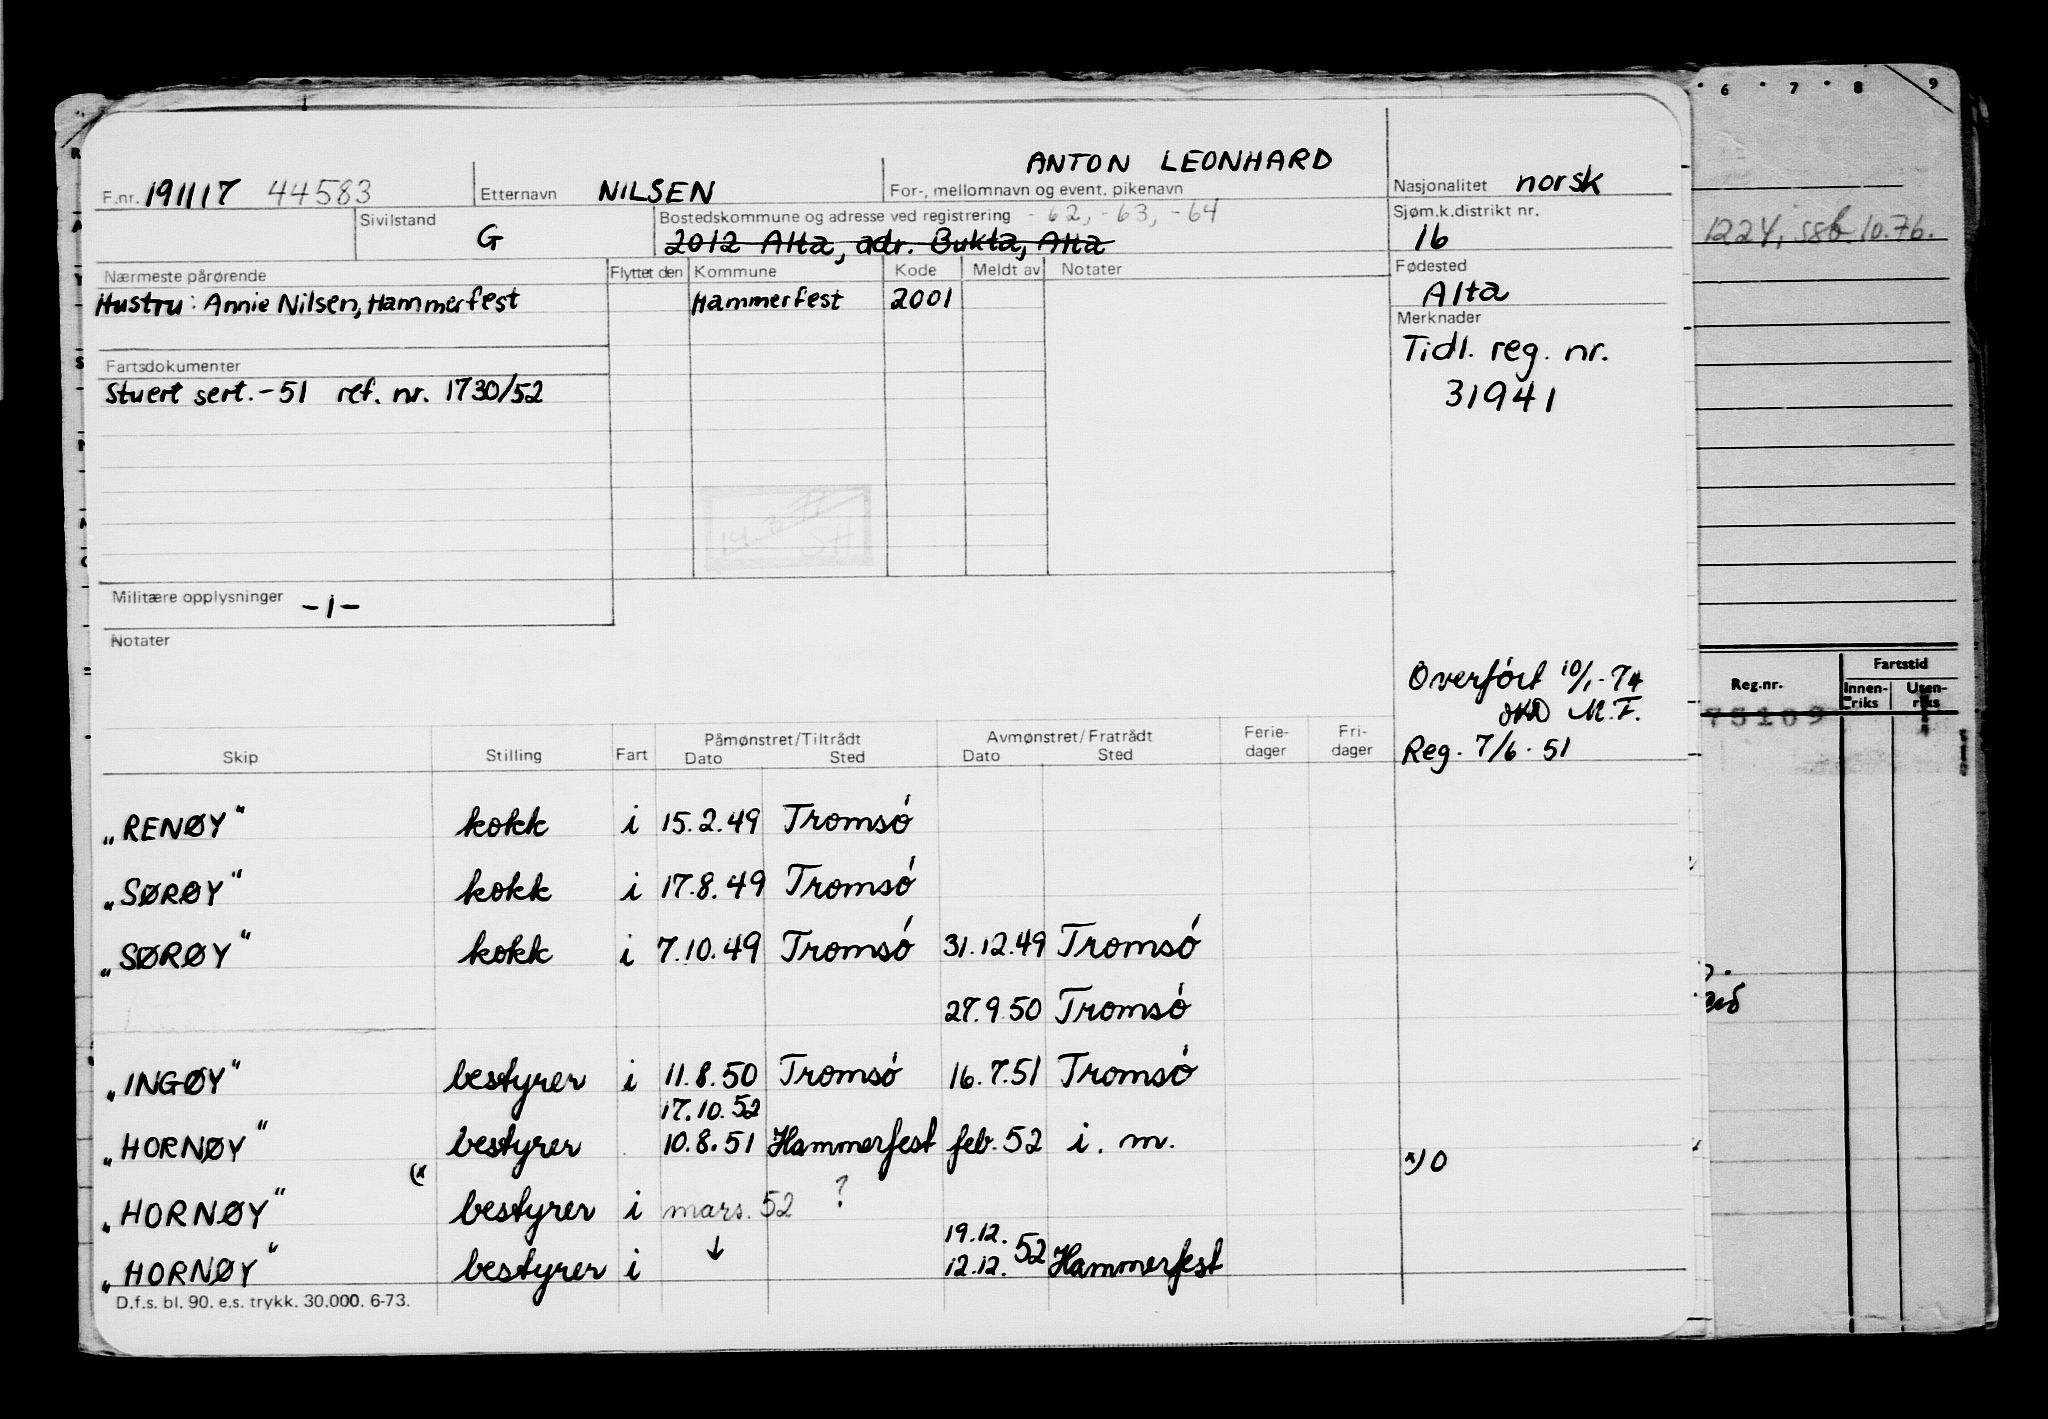 ANTON LEONHARD
F.nr. 191117 44583 Etternavn NILSEN For-, mellomnavn og event. pikenavn Nasjonalitet norsk
Sivilstand G Bostedskommune og adresse ved registrering -62, -63, -64 Sjøm.k.distrikt nr.
2012 Alta, adr. Bukta, Alta 16
Nærmeste pårørende Flyttet den Kommune Kode Meldt av Notater Fødested
Hustru: Annie Nilsen, Hammerfest Hammerfest 2001 Alta
Merknader
Tidl. reg. nr.
31941
Fartsdokumenter
Stuert sert. -51 ref. nr. 1730/52
SH
Militære opplysninger -1-
Notater
Overført 10/1-74
M.F.
Reg. 7/6-51
Skip Stilling Fart Påmønstret/Tiltrådt Dato Sted Avmønstret/Fratrådt Dato Sted Ferie-dager Fri-dager
„RENØY" kokk i 15.2.49 Tromsó
„SØRØY" kokk i 17.8.49 Tromsó
„SØRØY" kokk i 7.10.49 Tromsó 31.12.49 Tromsó
27.9.50 Tromsó
„INGØY" bestyrer i 11.8.50 Tromsó 16.7.51 Tromsó
17.10.52
„HORNØY" bestyrer 10.8.51 Hammerfest feb. 52 i. m.
(x x) 0
„HORNØY" bestyrer i mars. 52 ?
19.12.
„HORNØY" bestyrer i ↓ 12.12. 52 Hammerfest
D.f.s. bl. 90. e.s. trykk. 30.000. 6-73.
6 7 8 9
1224, ssb. 10.76.
Reg.nr. Fartstid
Innen-riks Uten-riks
75109